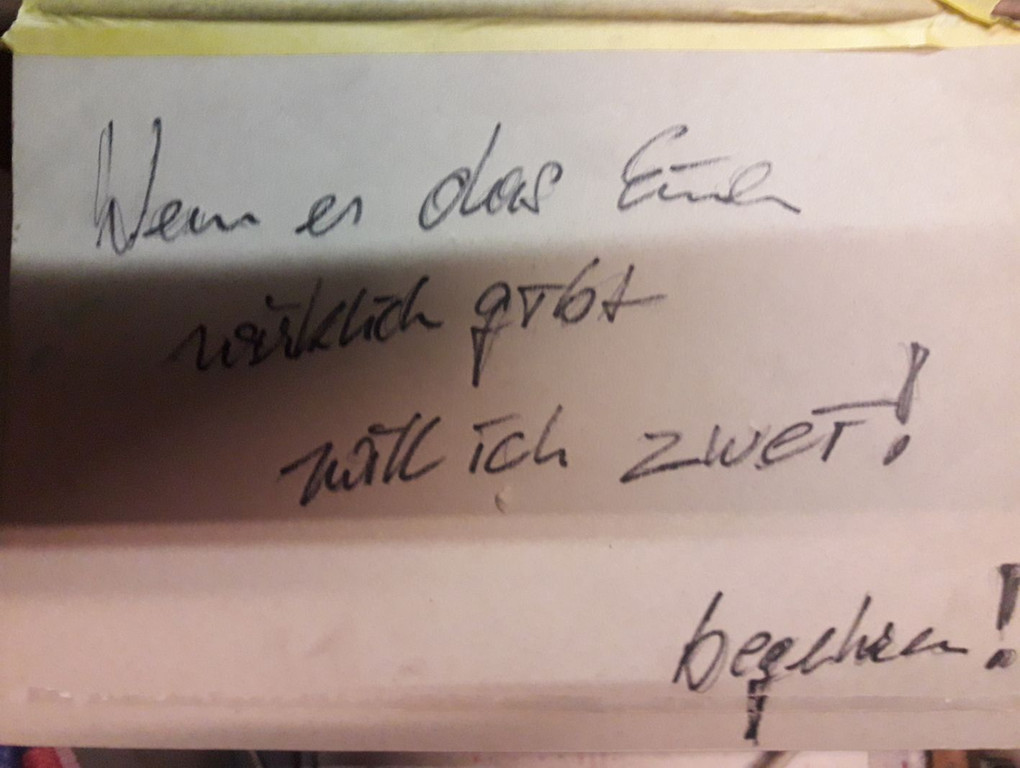 Wenn es das Eine
wirklich gibt
will ich zwei!
begehren!